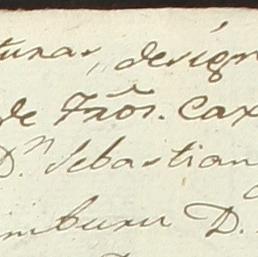 turas, desígn
de Tños. Cax
Dn Sebastian
imburu D.